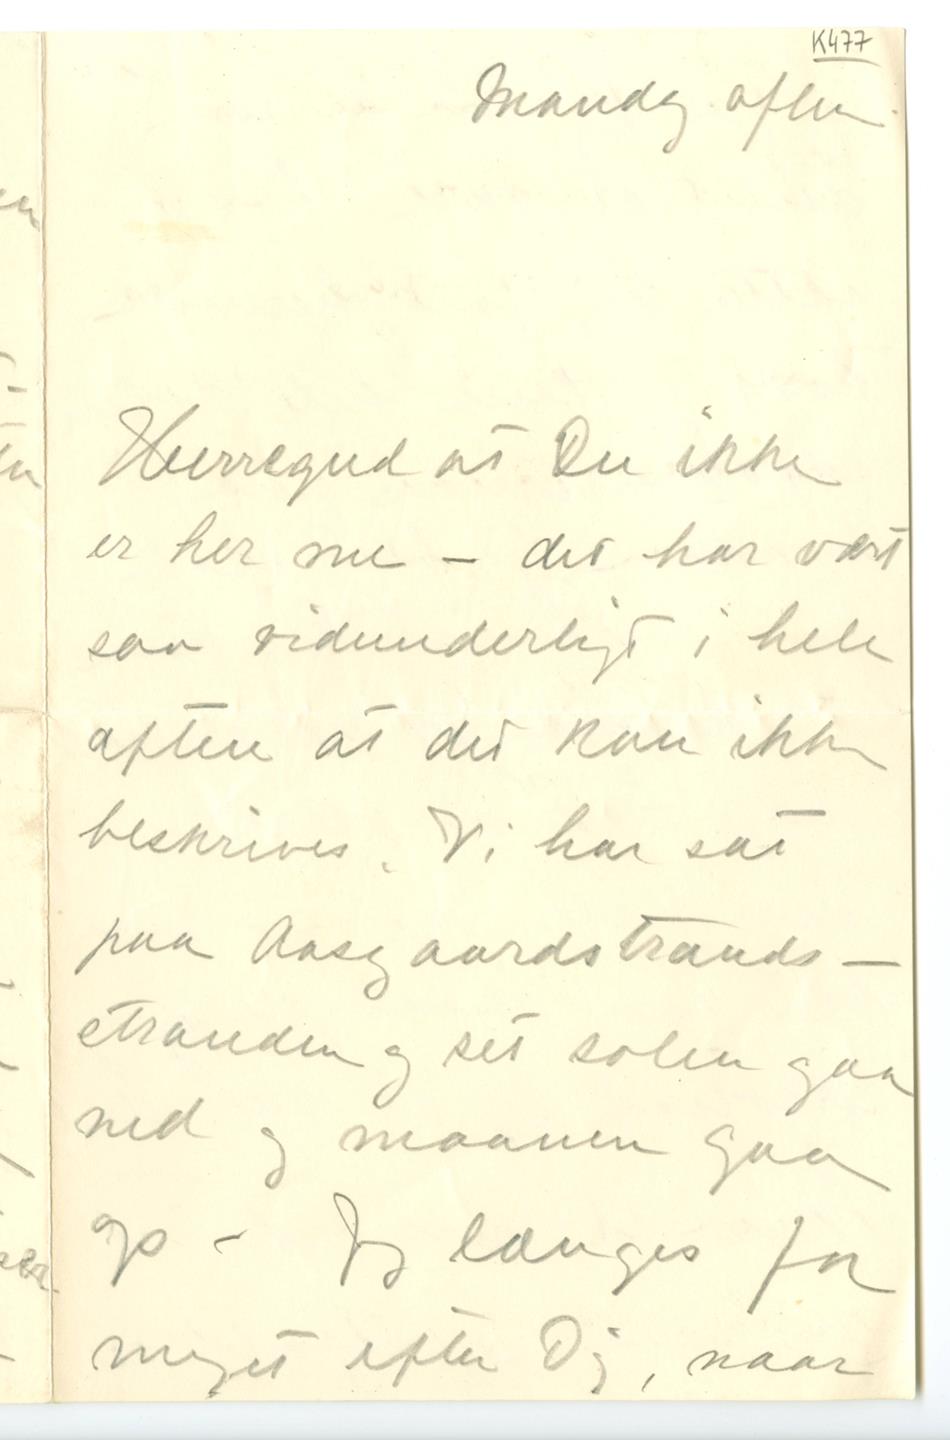 K477
Mandag aften.
Herregud at Du ikke
er her nu – det har vært
saa vidunderligt i hele
aften at det kan ikke
beskrives. Vi har sat
paa Aasgaardstrands –
stranden og set solen gaa
ned og maanen gaa
op – Jeg længes for
meget efter Dig, naar